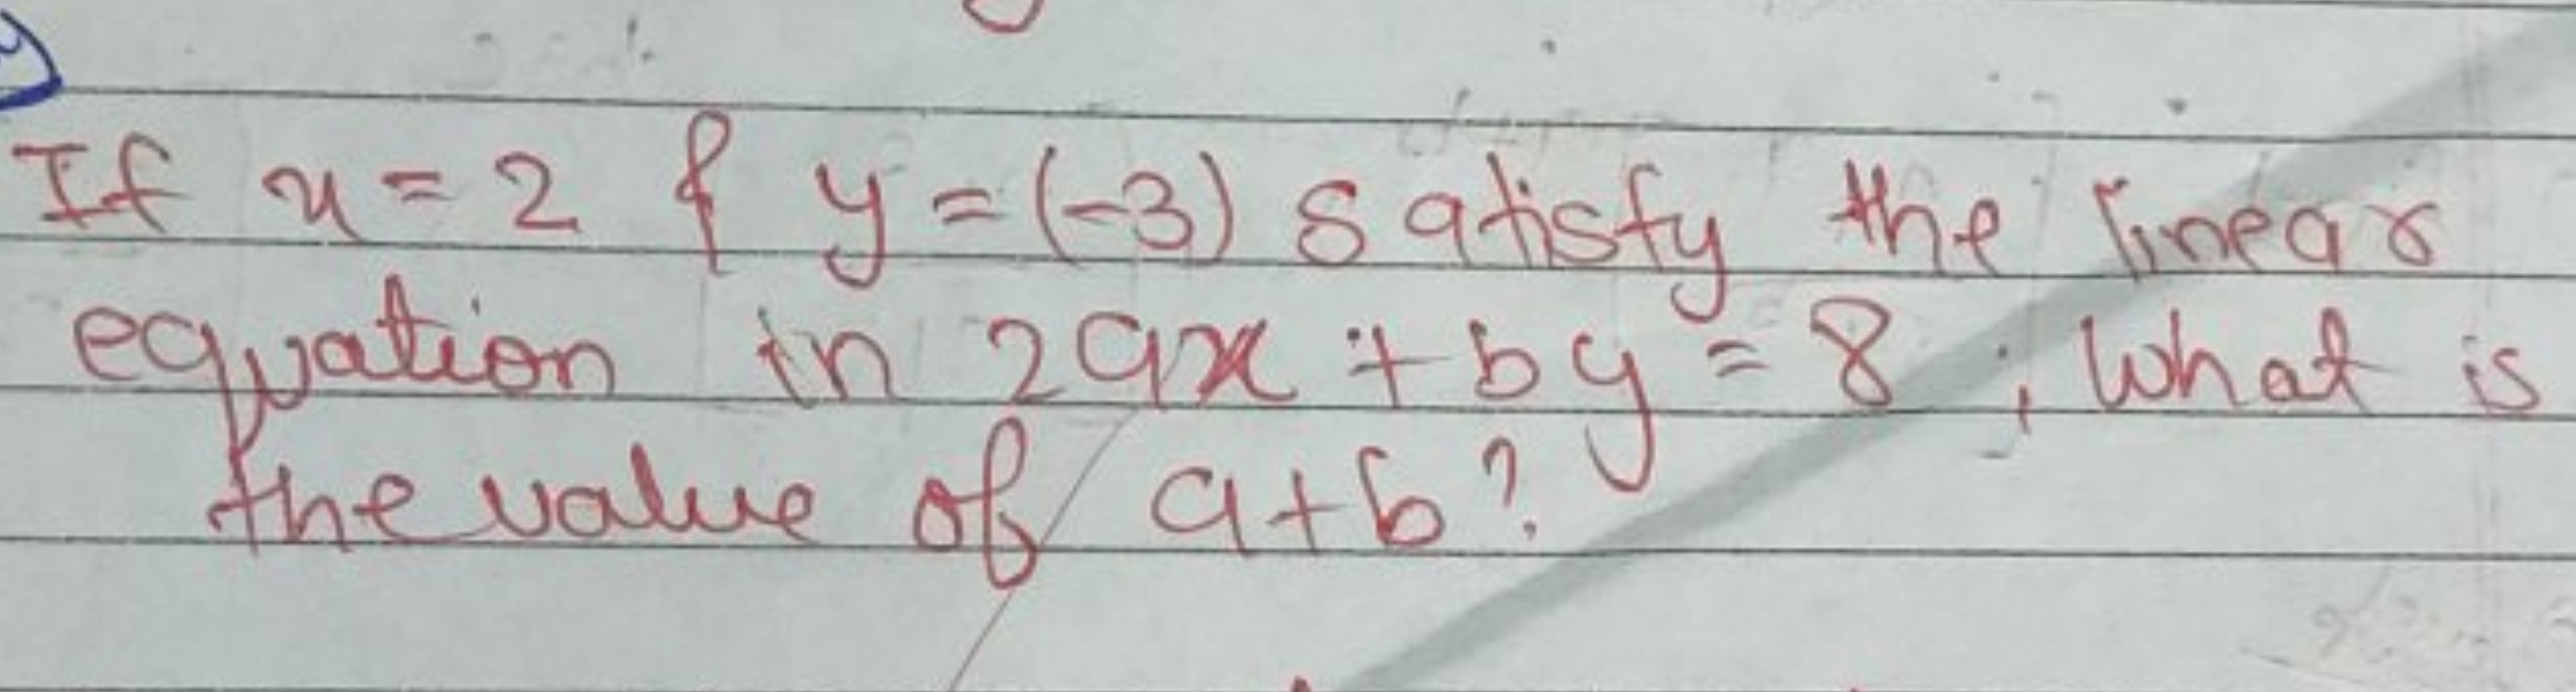 If x = 2 & y = (-3) satisfy the linear
equation in 2ax + by = 8, What is
the value of a+b?